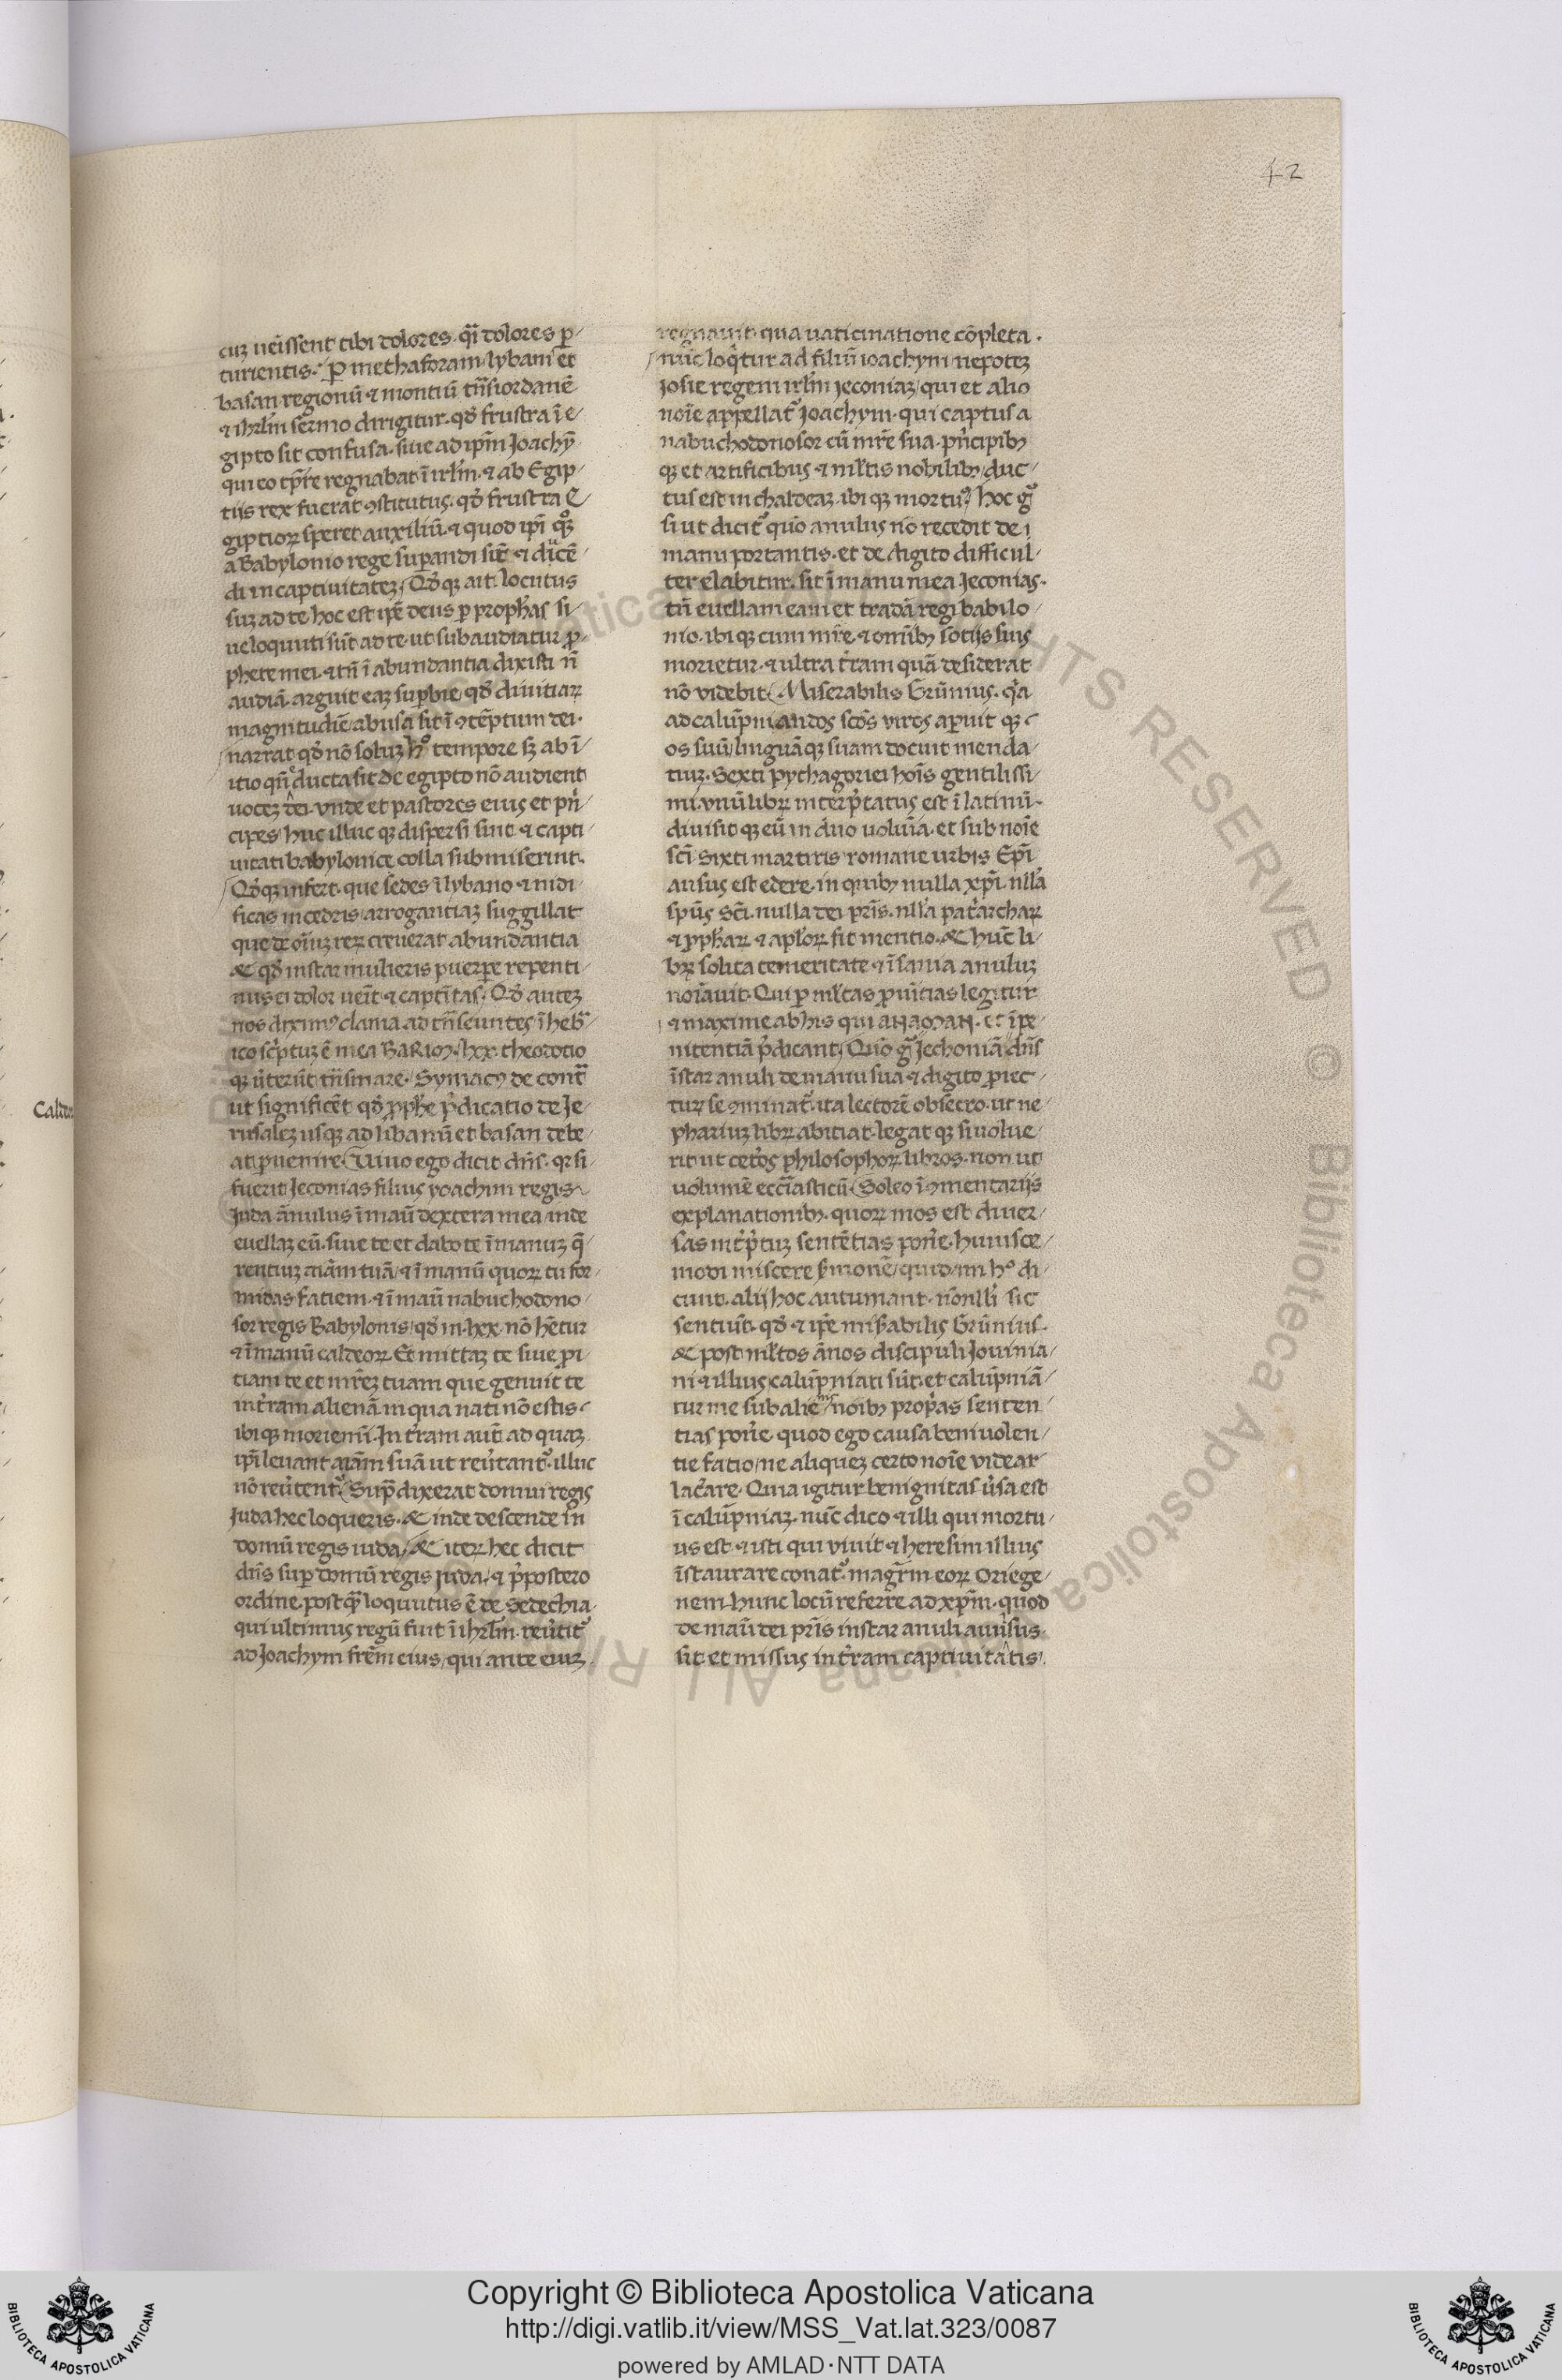 42
cuz ueīssent tibi dolores. qͣi dolores ꝑ/
turientis. Ꝑ methaforam lybani et
basan regionū ⁊ montiū tn̄siordanē
⁊ ihrlm̄ sermo dirigitur. qđ frustra ī e/
gipto sit confusa. siue ad ip̄m Joachȳ
qui eo tp̄re regnabat ī irlm̄. ⁊ ab Egip/
tiis rex fuerat ꝯstitutus. qđ frustra E/
giptioꝝ speret auxiliū. ⁊ quod ipī qꝫ
a Babylonio rege suꝑandi sit̄ ⁊ ducē/
di in captiuitatez. Qđqꝫ ait locutus
suz ad te hoc est ip̄e deus ꝑ proph̄as si/
ue loquuti sūt ad te. ut subaudiatur ꝓ/
phete mei. ⁊ tn̄ ī abundantia dixisti n̄
audiā. arguit eaz suꝑbie qđ diuitiaꝝ
magnitudiē abusa sit ī ꝯtēptum dei.
narrat qđ nō soluz hͦ tempore sꝫ ab ī/
itio qn̄ educta sit de egipto nō audient
uocez dei. vnde et pastores eius et pn̄/
cipes huc illuc qꝫ dispersi sint ⁊ capti/
uitati babylonice colla submiserint.
Qđqꝫ infert. que sedes ī lybano ⁊ nidi/
ficas in cedris arrogantiaz suggillat
que de oīuz reꝝ creuerat abundantia
& qđ instar mulieris puerꝑe repenti/
nus ei dolor ueīt ⁊ captītas. Qđ autez
nos diximꝰ clama ad tn̄seuntes ī heb̄/
ico sc̄ptuz ē mea BARIM. lxx. theodotio
qꝫ ūterūt tn̄smare. Symacꝰ de contͣ
ut significēt qđ ꝓph̄e p̄dicatio de Je/
rusalez usqꝫ ad libanū et basan debe/
at ꝑuenire. Viuo ego dicit dn̄s. qꝛ si/
fuerit Jeconias filius yoachim regis
Juda ānulus ī maū dextera mea inde
euellaz eū. siue te et dabo te ī manuz q̄/
rentiuz aīam tuā ⁊ ī manū quoꝝ tu for/
midas fatiem. ⁊ ī maū nabuchodono/
sor regis Babylonis qđ in. lxx. nō hētur
⁊ ī manū caldeoꝝ. Et mittaz te siue ꝓi/
tiam te et mr̄ez tuam que genuit te
in tr̄am alienā in qua nati nō estis
ibiqꝫ moriemī. In tr̄am aut̄ ad quaz
ipī leuant aīam suā ut reūtantᷣ. illuc
nō reūtentᷣ. Supͣ dixerat domui regis
Juda hec loqueris. & inde descende in
domū regis iuda. & iteꝝ hec dicit
dn̄s suꝑ domū regis juda. ⁊ p̄postero
ordine. postqͣ loquutus ē de Sedechia
qui ultimus regū fuit ī ihrlm̄. reūtitᷣ
ad Joachym fr̄em eius. qui ante euz
regnauit. qua uaticinatione cōpleta.
nūc loq̄tur ad filiū ioachym nepotez
Josie regem irlm̄ jeconiaz qui et alio
noīe appellatᷣ Joachym. qui captus a
nabuchodonosor cū mr̄e sua. pn̄cipibꝫ
qꝫ et artificibus ⁊ ml̄tis nobilibꝫ duc/
tus est in chaldeaz. ibiqꝫ mortuꝰ. hoc gͦ
si ut dicitᷣ quo anulus nō recedit de
manu portantis. et de digito difficul/
ter elabitur. sit ī manu mea Jeconias.
tn̄ euellam eam et tradā regi babilo/
nio. ibiqꝫ cum mr̄e. ⁊ omībꝫ sotiis suis
morietur. ⁊ ultra tr̄am quā desiderat
nō videbit. Miserabilis Grūnius. qͥa
ad calūpniandos scōs viros aperuit qꝫ
os suū linguāqꝫ suam docuit menda/
tiuz. Sexti pythagoriei hoīs gentilissi/
mi. vnū libꝝ interp̄tatus est ī latinū.
diuisitqꝫ eū in duo uoluīa. et sub noīe
scī Sixti martiris romane urbis Epī
ausus est edere. in quibꝫ nulla xpī. nll̄a
spūs Scī. nulla dei pr̄is. nll̄a patͥarchaꝝ
⁊ ꝓph̄aꝝ ⁊ apl̄oꝝ fit mentio. & hūc li/
bꝝ solita temeritate ⁊ īsania anuluz
noīauit. Qui ꝑ ml̄tas ꝓuītias legitur
⁊ maxime ab his qui ANAMAN. et īpe/
nitentiā p̄dicant. Quō gͦ Jechoniā dn̄s
īstar anuli de manu sua ⁊ digito ꝓiec/
turꝫ se ꝯminatᷣ. ita lectorē obsecro. ut ne/
phariuz libꝝ abitiat. legatqꝫ si uolue/
rit ut cet̄os philosophoꝝ libros. non ut
uolumē eccīasticū. Soleo ī ꝯmentariis
explanationibꝫ. quoꝝ mos est diuer/
sas int̄p̄tuz sentētias pon̄e. huiusce/
modi miscere ẜmonē. quidam hͦ di/
cunt. alii hoc autumant. nōnll̄i sic
sentiūt. qđ ⁊ ip̄e miẜabilis Grūnius.
& post ml̄tos ānos discipuli Jouinia/
ni ⁊ illius calūpniati sūt. et calūpniā/
tur me sub alienis noībꝫ propͥas senten
tias pon̄e. quod ego causa beniuolen/
tie fatio. ne aliquez certo noīe videar
lac̄are. Quia igitur benignitas ūsa est
ī calūpniaz. nūc dico ⁊ illi qui mortu/
us est. ⁊ isti qui viuit ⁊ heresim illius
īstaurare conatᷣ. magrm̄ eoꝝ Oriege/
nem hunc locū referre ad xp̄m. quod
de maū dei pr̄is instar anuli auūsus
sit. et missus in tr̄am captiuitatis.
Copyright © Biblioteca Apostolica Vaticana
http://digi.vatlib.it/view/MSS_Vat.lat.323/0087
powered by AMLAD·NTT DATA
BIBLIOTECA APOSTOLICA VATICANA
BIBLIOTECA APOSTOLICA VATICANA